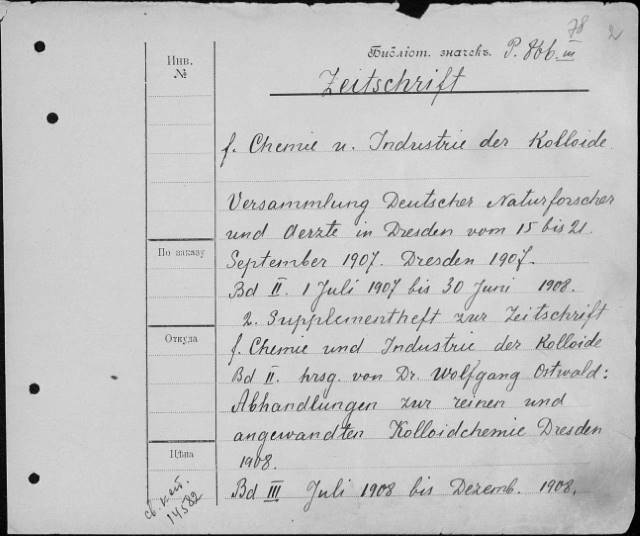 78
2
Библіот. значекъ. P. 866. III
Zeitschrift
f. Chemie u. Industrie der Kolloide
Versammlung Deutscher Naturforscher
und Aerzte in Dresden vom 15 bis 21.
September 1907. Dresden 1907.
Bd II. 1 Juli 1907 bis 30 Juni 1908.
2. Supplementheft zur Zeitschrift
f. Chemie und Industrie der Kolloide
Bd II. hrsg. von Dr. Wolfgang Ostwald:
Abhandlungen zur reinen und
angewandten Kolloidchemie Dresden
1908.
Bd III Juli 1908 bis Dezemb. 1908.
Инв.
№
По заказу
Откуда
Цѣна
св. кат.
14582